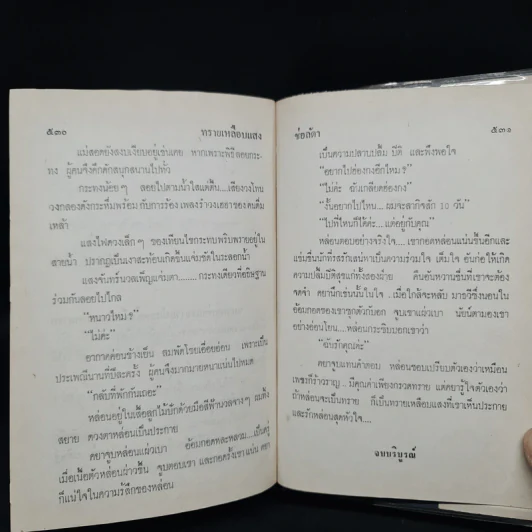 ๕๓๐ ทรายเหลือบแสง
แม่สอดยังสงบเงียบอยู่เช่นเคย หากเพราะพิธีลอยกระ-
ทง ผู้คนจึงคึกคักสนุกสนานไปทั่ว
กระทงน้อย ๆ ลอยไปตามน้ำใสแต่ตื้น...เสียงวงไทน
วงกลองดังกระหึ่มพร้อมกับการร้องเพลงรำวงเฮฮาของคนดื่ม
เหล้า
แสงไฟดวงเล็ก ๆ ของเทียนไขกระทบพริบพรายอยู่ใน
สายน้ำ ปรากฏเป็นเงาสะท้อนเกิดขึ้นแจ่มชัดในละลอกน้ำ
แสงจันทร์นวลเพ็ญแจ่มตา........กระทงเดียวที่อธิษฐาน
ร่วมกันลอยไปไกล
“หนาวไหมฮึ”
“ไม่ค่ะ”
อากาศค่อนข้างเย็น ลมพัดโชยเอื่อยอ่อน เพราะเป็น
ประเพณีนานที่ปีละครั้ง ผู้คนจึงมากมายหนาแน่นไปหมด
“กลับที่พักกันเถอะ”
หล่อนอยู่ในเสื้อลูกไม้ปักด้วยมือสีฟ้านวลจางๆ ผมทิ้ง
สยาย ดวงตาหล่อนเป็นประกาย
คยาจูบหล่อนแผ่วเบา อ้อมกอดทะหลวม....เป็นครู่
เมื่อเนื้อตัวหล่อนผ่าวชื้น จูบตอบเขา และกอดรั้งเขาแน่น คยา
ก็แน่ใจในความรู้สึกของหล่อน
ช่อลัดา ๕๓๑
เป็นความปลาบปลื้ม ปีติ และพึงพอใจ
“อยากไปฮ่องกงอีกไหมฮึ”
“ไม่ค่ะ ฉันเกลียดฮ่องกง”
“งั้นอยากไปไหน...ผมจะลากิจสัก 10 วัน”
“ไปที่ไหนก็ได้ค่ะ...แต่อยู่กับคุณ”
หล่อนตอบอย่างจริงใจ....เขากอดหล่อนแน่นขึ้นอีกและ
แช่มชื่นนักที่รสรักเสน่หาเป็นความร่วมใจ เต็มใจ อันก่อให้เกิด
ความปลื้มปีติสุขแก่ทั้งสองฝ่าย คืนอันหวานชื่นที่เขาจะต้อง
จดจำ คยานึกเช่นนั้นในใจ..เมื่อใกล้จะหลับ มารวีซึ่งนอนใน
อ้อมกอดของเขาซุกตัวกับอก จูบเขาแผ่วเบา นัยน์ตามองเขา
อย่างอ่อนโยน...หล่อนกระซิบบอกเขาว่า
“ฉันรักคุณค่ะ”
คยาจูบแทนคำตอบ หล่อนชอบเปรียบตัวเองว่าเหมือน
เพชรก็ร้าวราญ..มีคุณค่าเพียงกรวดทราย แต่คยารู้ใจตัวเองว่า
ถ้าหล่อนจะเป็นทราย ก็เป็นทรายเหลือบแสงที่เขาเห็นประกาย
และรักหล่อนสุดหัวใจ....
จบบริบูรณ์